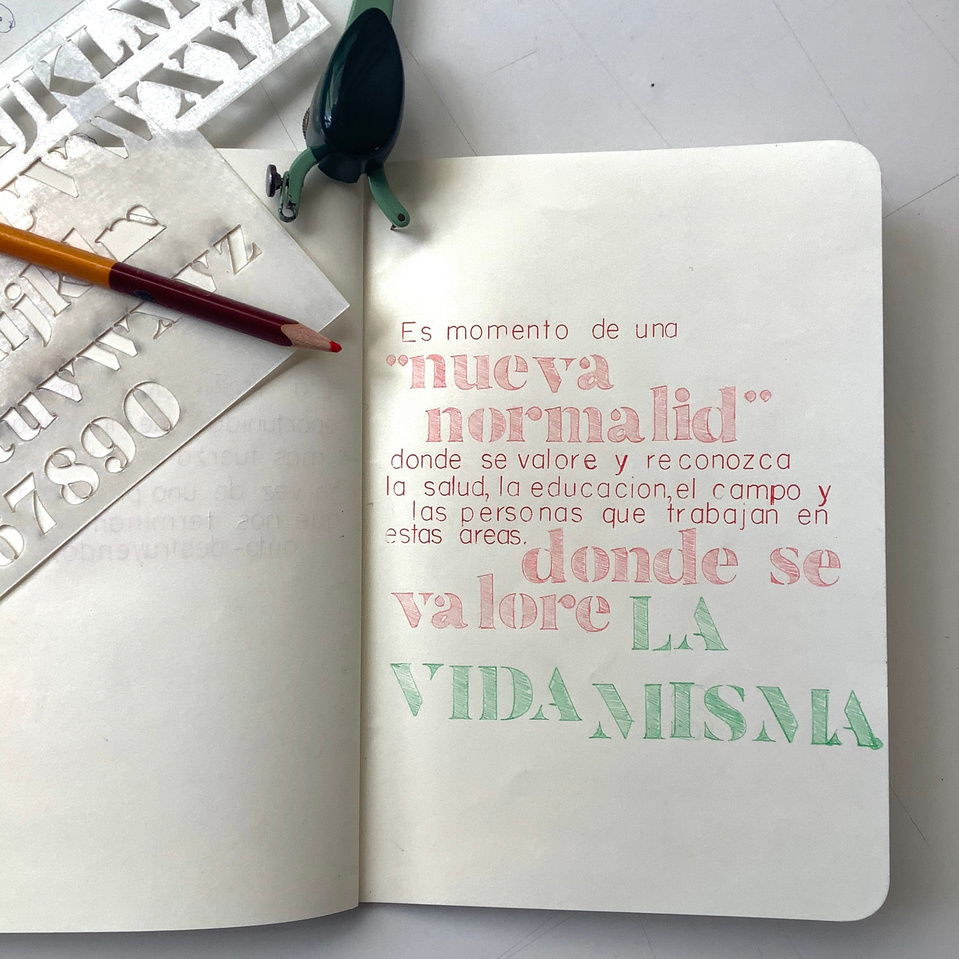 JKLM
WXYZ
ijk
tuvwxyz
67890
Es momento de una
"nueva
normalid"
donde se valore y reconozca
la salud, la educacion, el campo y
las personas que trabajan en
estas areas.
donde se
valore LA
VIDA MISMA